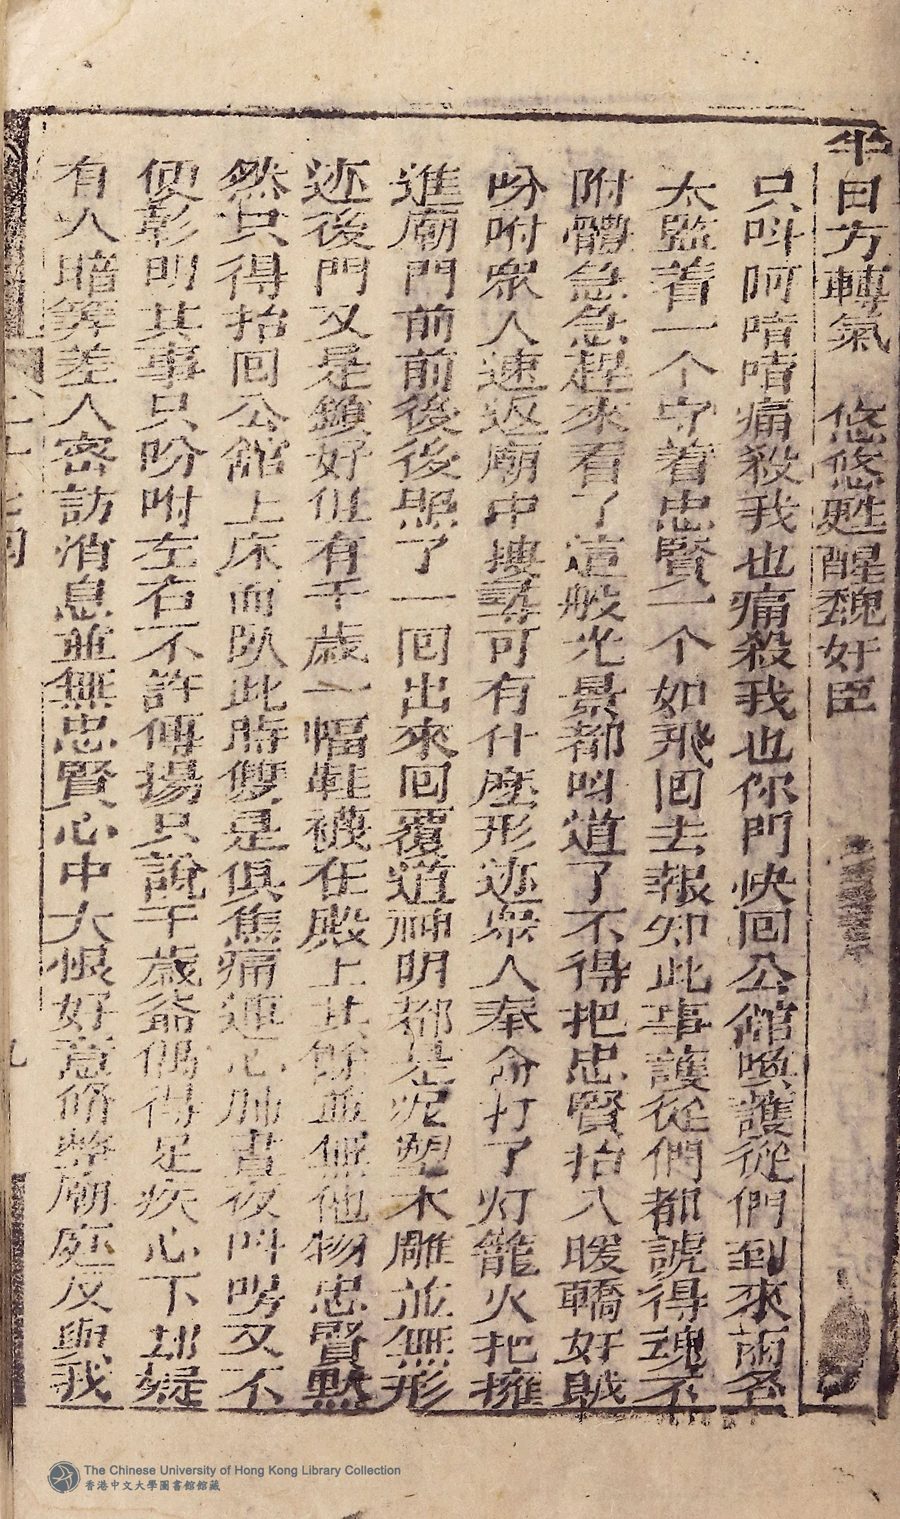 半日方轉氣　悠悠甦醒魏奸臣
只呌阿唷唷痛殺我也痛殺我也你門快回公館喚護從們到來両名
太監着一个守着忠賢一个如飛回去報知此事護從們都諕得魂不
附體急急趕來看了這般光景都呌道了不得把忠賢抬入暖轎奸賊
吩咐衆人速返廟中搜尋可有什麽形迹衆人奉命打了灯籠火把擁
進廟門前前後後照了一回出來回覆道神明都是泥塑木雕並無形
迹後門又是鎖好但有千歲一幅鞋襪在殿上其餘並無他物忠賢黙
然只得抬回公館上床而臥此時雙足俱焦痛連心肺晝夜呌喟又不
便彰明其事只吩咐左右不許傳揚只說千歲爺偶得足疾心下却疑
有人暗算差人密訪消息並無忠賢心中大恨好意脩整廟庭反與我
九
The Chinese University of Hong Kong Library Collection
香港中文大學圖書館館藏